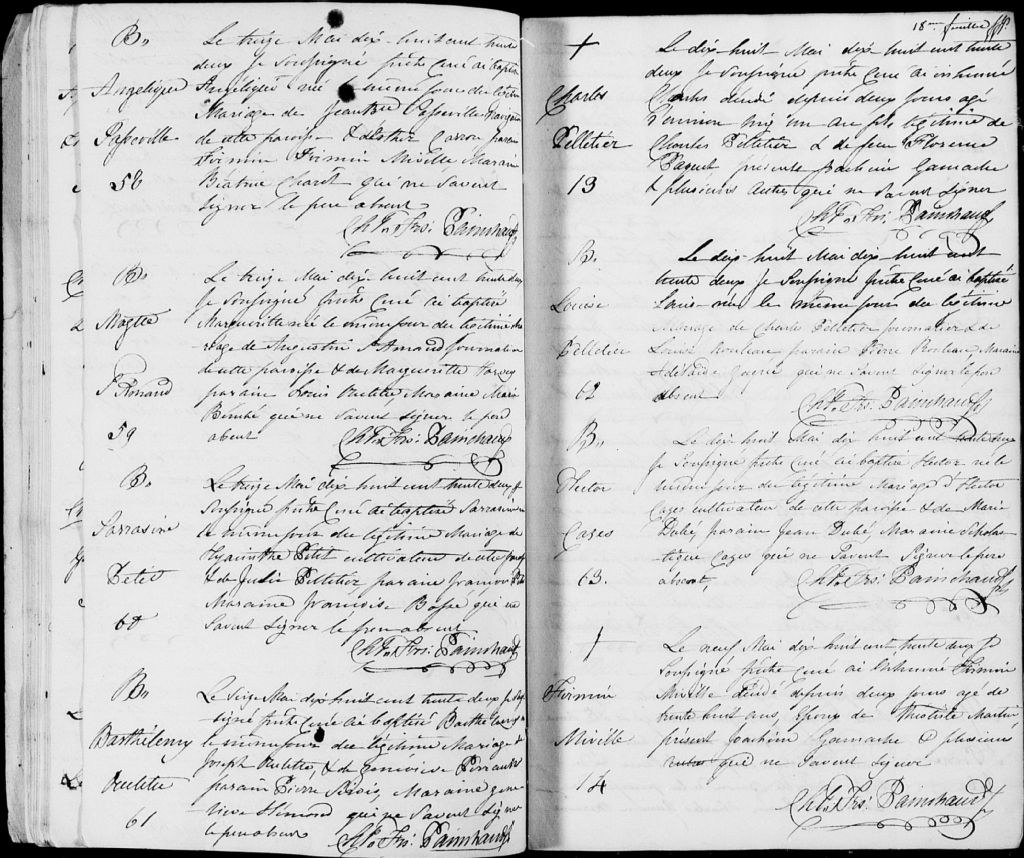 B.
Angelique
Pesseville
58
Le treize Mai dix-huit cent trente
deux Je Soussigné prêtre Curé ai baptisé
Angélique née le même jour du légitime
Mariage de Jeantte Pesseville
de cette paroisse & d'Esther Caron parain
Firmin Mirville Maraine
Béatrice Charêt qui ne savent
signer le pere absent
Chs Frs: Painchaud
B.
Magtte
St Amand
59
Le treize Mai dix-huit cent trente deux
Je Soussigné prêtre Curé ai baptisé
Margueritte née le même jour du légitime
riage de Augustin St Amand journalier
de cette paroisse & de Marguerite
parain Louis Ouelette Maraine Marie
Bembé qui ne savent signer le pere
absent Chs Frs: Painchaud
B.
Sarrasine
Petit
60
Le treize Mai dix huit cent trente deux Je
Soussigné prêtre Curé ai baptisé Sarrasine
le même jour du légitime Mariage de
Hyacinthe Petit cultivateur de cette
& de Julie Pelletier parain François
Maraine Françoise Bossé qui ne
savent signer le pere absent
Chs Frs: Painchaud
B.
Barthilemy
Ouelette
61
Le Seize Mai dix huit cent trente deux Je Sous
signé prêtre Curé ai baptisé Barthelemy
le même jour du légitime Mariage de
Joseph Ouelette, & de Geneviève Perrault
parain Pierre Maraine gene
viève qui ne savent signer
le pere absent Chs Frs: Painchaud
18me feuillet
+
Charles
Pelletier
13
Le dix-huit Mai dix-huit cent trente
deux Je Soussigné prêtre Curé ai inhumé
Charles décédé depuis deux jours agé
d'environ un an fils légitime de
Charles Pelletier & de feue Florence
Paquet présents Joachim Gamache
& plusieurs autres qui ne savent signer
Chs Frs: Painchaud
B.
Louise
Pelletier
62
Le dix-huit Mai dix-huit cent
trente deux Je Soussigné prêtre Curé ai baptisé
Louise née le même jour du légitime
Mariage de Charles Pelletier journalier & de
Louise Rouleau parain Pierre Rouleau, Maraine
Adélaide qui ne savent signer le pere
absent Chs Frs: Painchaud
B.
Hector
Cazes
63.
Le dix huit Mai dix huit cent trente deux
Je Soussigné prêtre Curé ai baptisé Hector né le
même jour du légitime Mariage d'Hector
Cazes cultivateur de cette paroisse & de Marie
Dubé, parain Jean Dubé, Maraine Scholas
tique Cazes qui ne savent signer le pere
absent, Chs Frs: Painchaud
+
Firmin
Miville
14
Le neuf Mai dix-huit cent trente deux Je
Soussigné prêtre Curé ai inhumé Firmin
Miville décédé depuis deux jours agé de
trente huit ans, Epoux de Thartile Martin
présent Joachim Gamache & plusieurs
qui ne savent signer
Chs Frs: Painchaud